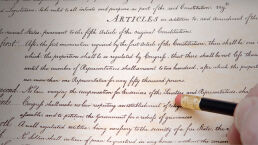 Legislatures, to be valid to all intents and purposes as part of the said Constitution; viz.
ARTICLES in addition to, and amendment of the
several States, pursuant to the fifth Article of the original Constitution.
first... After the first enumeration required by the first Article of the Constitution, there shall be one
the proportion shall be so regulated by Congress, that there shall be not less than
the number of Representatives shall amount to two hundred, after which the proportion
nor more than one Representative for every fifty thousand persons.
No law, varying the compensation for the services of the Senators and Representatives, shall
Congress shall make no law respecting an establishment of
assemble, and to petition the government for a redress of grievances.
A well regulated militia, being necessary to the security of a free State, the
No Soldier shall, in time of peace, be quartered in any house, without the